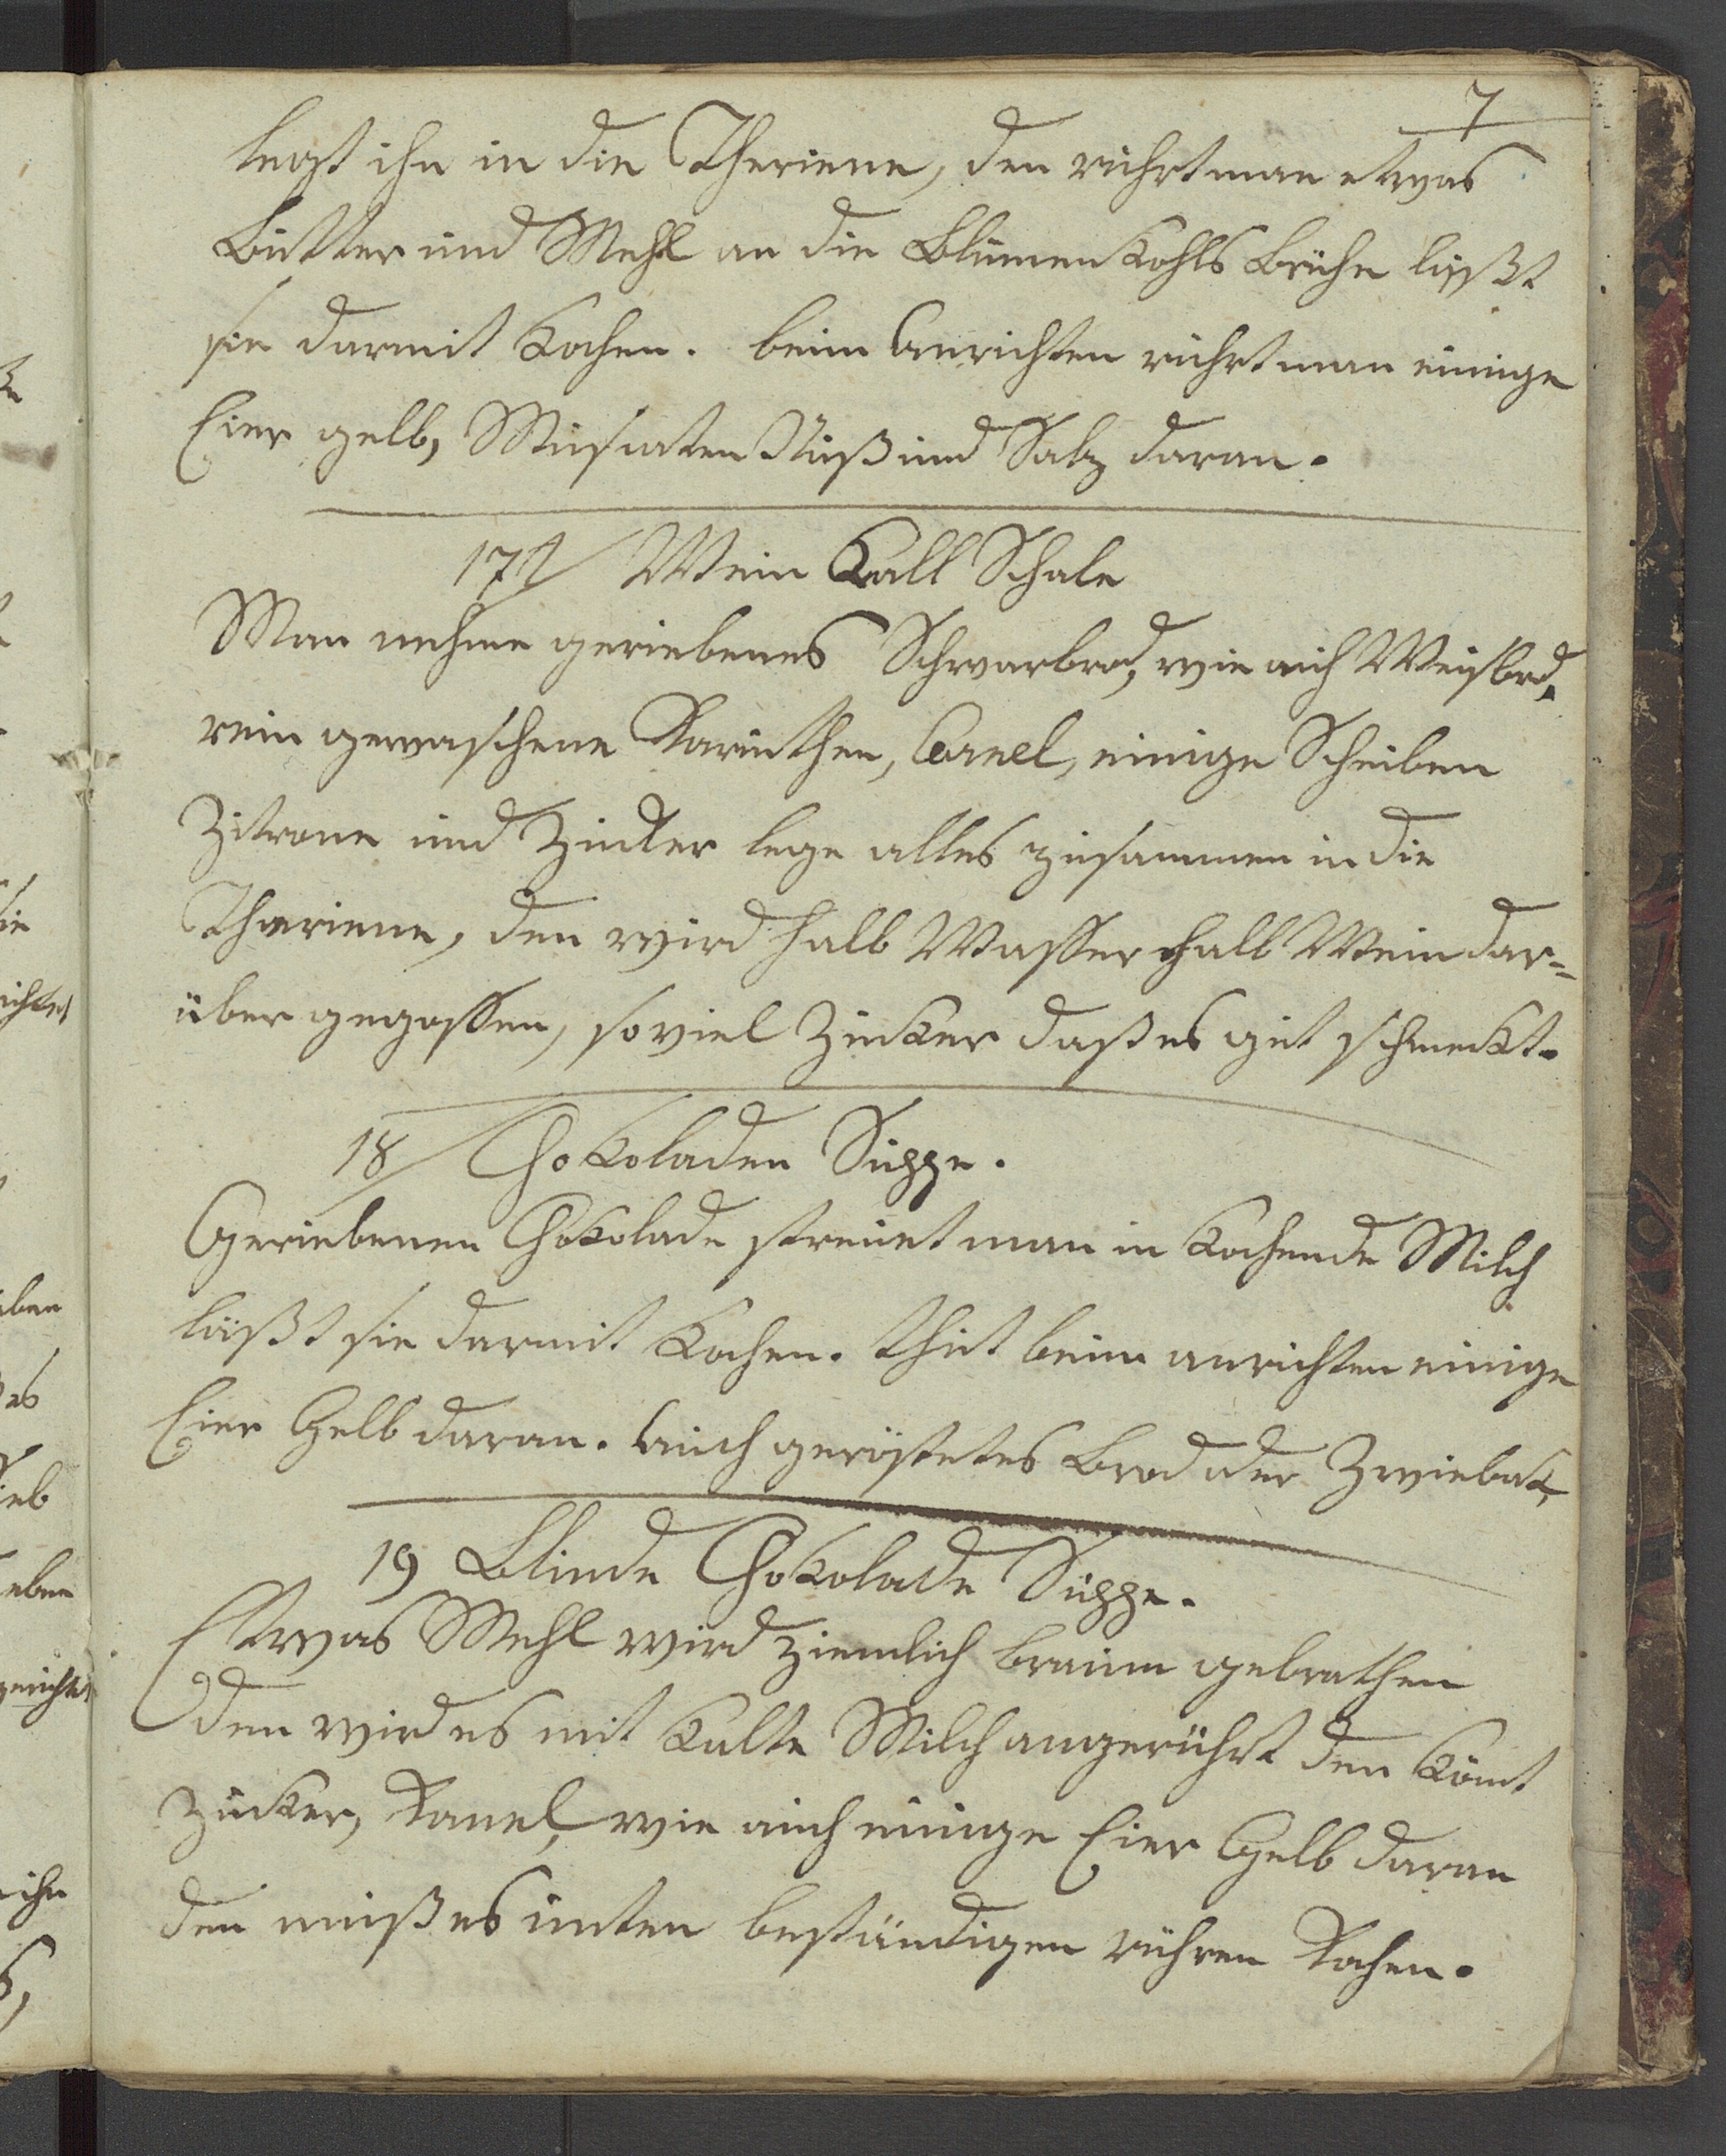 7
legt ihn in die Theriene, den rührt man etwas
Butter und Mehl an die Blumen Kohls Brühe läßt
sie darmit Kochen. beim Anrichten rührt man einige
Eier gelb, Muscaten Nuß und Salz daran.
17/ Wein Kall Schale
Man nehme geriebenes Schwarbrod, wie auch Weisbrod,
rein gewaschene Karinthen, Canel, einige Scheiben
Zitrone und Zucker lege alles zusammen in die
Theriene, den wird halb Wasser halb Wein dar=
über gegossen, so viel Zucker daß es gut schmeckt.
18/ Chokoladen Suppe.
Geriebenen Chokolade streuet man in Kochende Milch
läßt sie darmit Kochen. thut beim anrichten einige
Eier Gelb daran. auch geröstetes Brod oder Zwiebak,
19 Blinde Chokolade Suppe.
Etwas Mehl wird ziemlich braun gebrathen
den wird es mit Kalte Milch angerührt den Kömt
Zucker, Kanel, wie auch einige Eier Gelb daran
den muß es unten beständigen rühren Kochen.